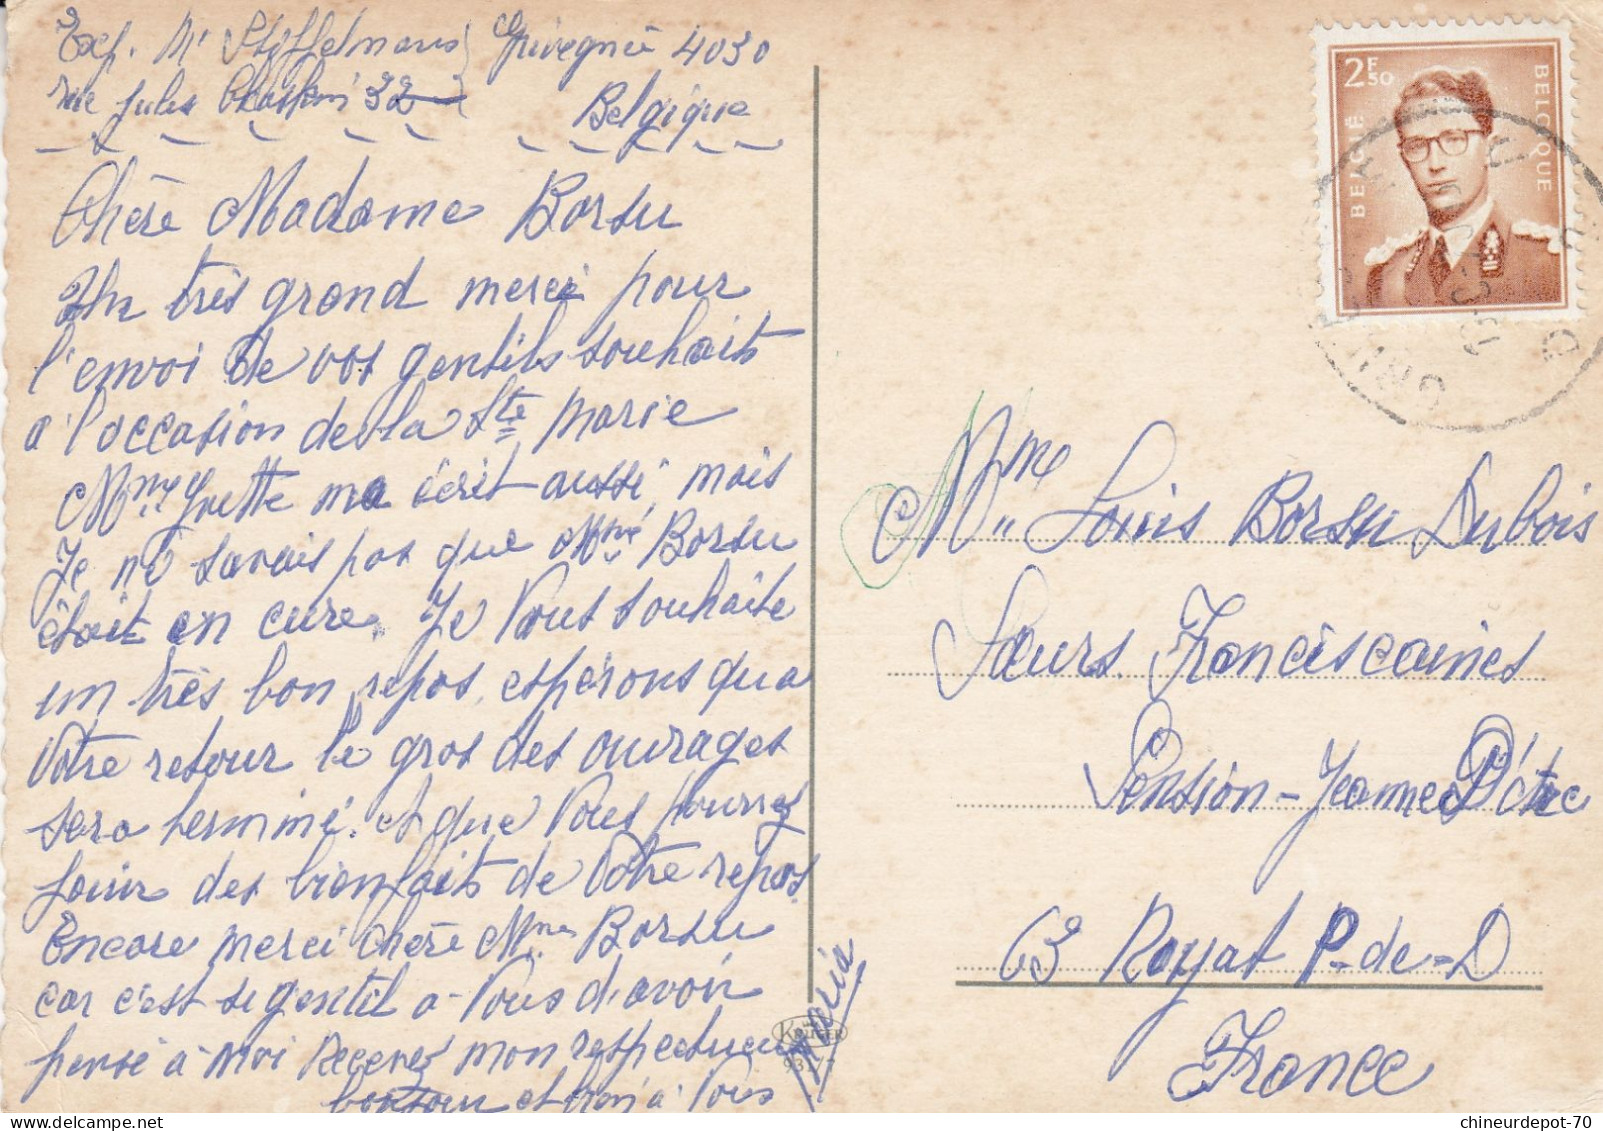 Exp. Mr Stiffelmans Grivegnée 4030
rue Jules 32 Belgique
Chère Madame Borsu
Un très grand merci pour
l'envoi de vos gentils souhaits
a l'occasion de la Ste Marie
Mme Yvette ma écrit aussi, mais
Je ne savais pas que Mme Borsu
était en cure. Je Vous souhaite
un très bon repos, espérons qu'a
Votre retour le gros des ouvrages
sera terminé. et que Vous pourrez
jouir des bienfaits de Votre repos.
Encore merci Chère Mme Borsu
car c'est si gentil a Vous d'avoir
pensé à moi Recevez mon respectueux
bonjour et à Vous
Maria
KRÜGER
2F50
BELGIË
BELGIQUE
Mme Louis Borsu Dubois
Sœurs Franciscaines
Pension - Jeanne D'Arc
63 Royat P-de-D
France
chineurdepot-70